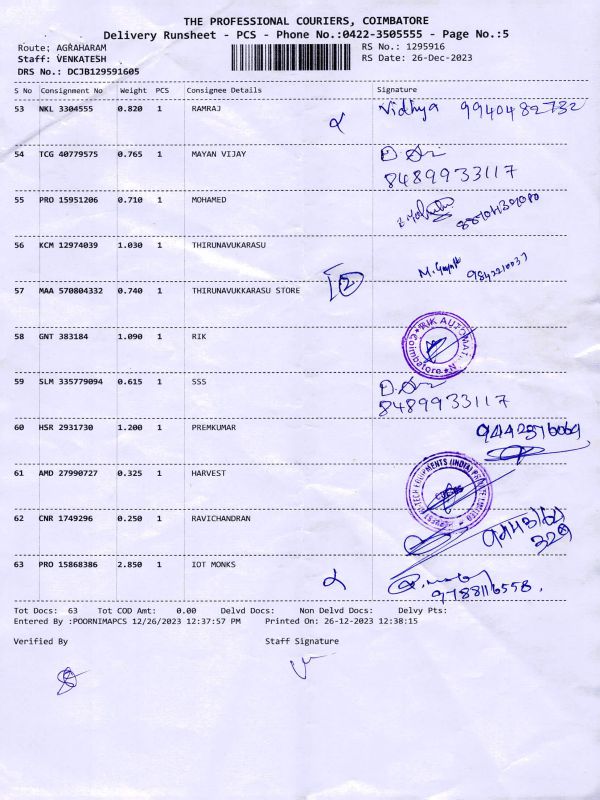 THE PROFESSIONAL COURIERS, COIMBATORE
Delivery Runsheet - PCS - Phone No.:0422-3505555 - Page No.:5
Route: AGRAHARAM RS No.: 1295916
Staff: VENKATESH RS Date: 26-Dec-2023
DRS No.: DCJB129591605
S No Consignment No Weight PCS Consignee Details Signature
53 NKL 3304555 0.820 1 RAMRAJ Vidhya 9940482732
54 TCG 40779575 0.765 1 MAYAN VIJAY
8489933117
55 PRO 15951206 0.710 1 MOHAMED
56 KCM 12974039 1.030 1 THIRUNAVUKARASU
57 MAA 570804332 0.740 1 THIRUNAVUKKARASU STORE 2
58 GNT 383184 1.090 1 RIK RIK AUTOMAT Coimbatore
59 SLM 335779094 0.615 1 SSS
8489933117
60 HSR 2931730 1.200 1 PREMKUMAR
61 AMD 27990727 0.325 1 HARVEST
62 CNR 1749296 0.250 1 RAVICHANDRAN
63 PRO 15868386 2.850 1 IOT MONKS
9788116558
Tot Docs: 63 Tot COD Amt: 0.00 Delvd Docs: Non Delvd Docs: Delvy Pts:
Entered By :POORNIMAPCS 12/26/2023 12:37:57 PM Printed On: 26-12-2023 12:38:15
Verified By Staff Signature